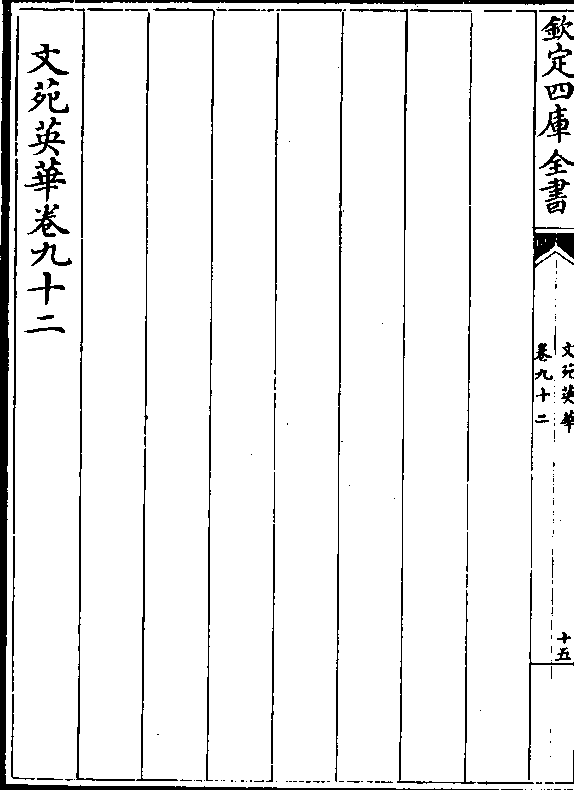 欽定四庫全書
文苑英華
卷九十二
十五
文苑英華卷九十二